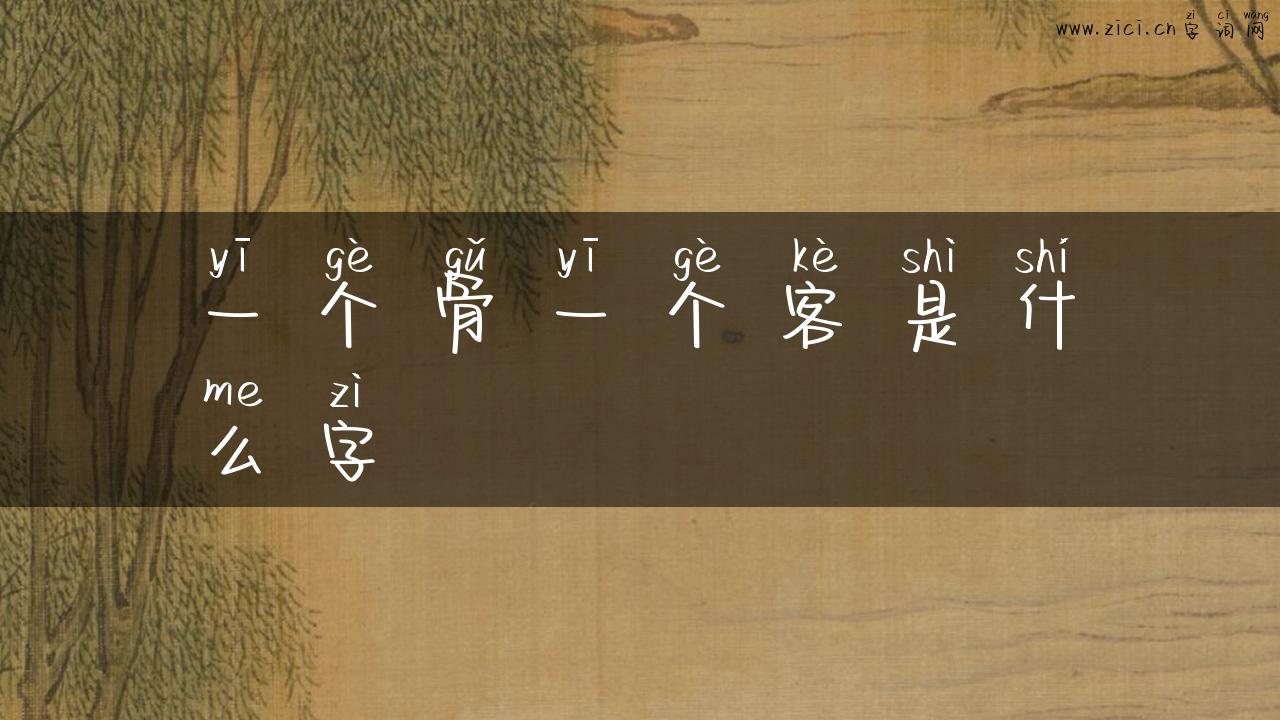 zì cí wǎng
www.zici.cn 字词网
yī gè gǔ yī gè kè shì shí
一个骨一个客是什
me zì
么字